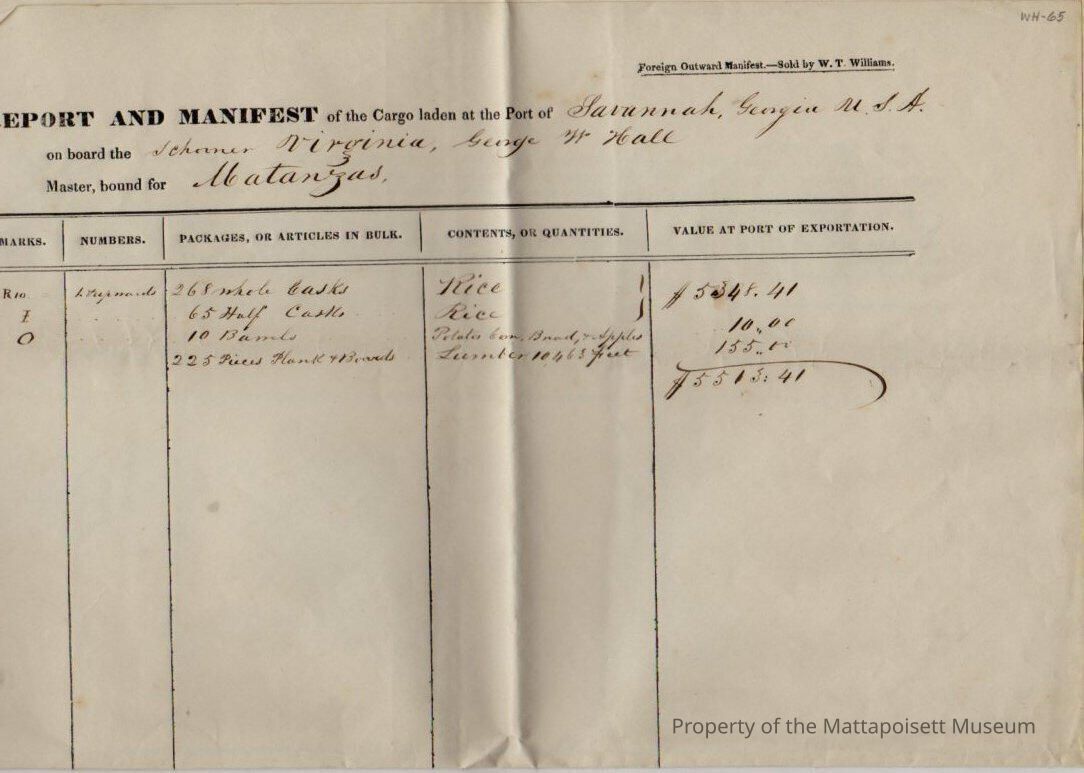 WH-65
Foreign Outward Manifest.—Sold by W. T. Williams.
EPORT AND MANIFEST of the Cargo laden at the Port of Savannah, Georgia U. S. A.
on board the Schooner Virginia, George W Hall
Master, bound for Matanzas.
MARKS. NUMBERS. PACKAGES, OR ARTICLES IN BULK. CONTENTS, OR QUANTITIES. VALUE AT PORT OF EXPORTATION.
R10 1. & upwards 268 whole Casks Rice $5348.41
65 Half Casks Rice
O 10 Barrels Potatoes Bread, & Apples 10,,00
225 Pieces Plank & Boards Lumber 10,463 feet 155,,00
$5513:41
Property of the Mattapoisett Museum